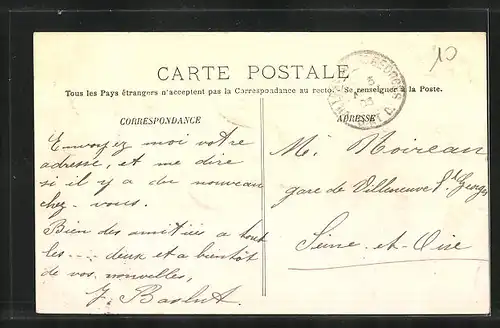 10
CARTE POSTALE
Tous les Pays étrangers n'acceptent pas la Correspondance au recto. Se renseigner à la Poste.
CORRESPONDANCE
Envoyez moi votre
adresse, et me dire
si il y a du nouveau
chez - vous.
Bien des amitiés a tout
les .... deux et a bientôt
de vos nouvelles,
ADRESSE
Mr. Noireau
gare de Villeneuve St Georges
Seine-et-Oise